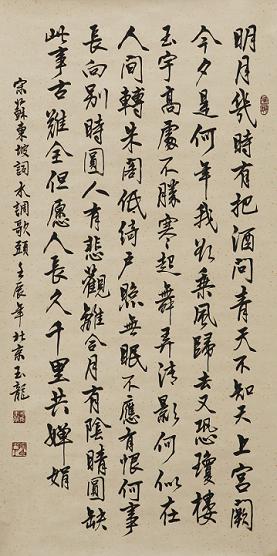 明月幾時有把酒問青天不知天上宮闕
今夕是何年我欲乘風歸去又恐瓊樓
玉宇高處不勝寒起舞弄清影何似在
人間轉朱閣低綺戶照無眠不應有恨何事
長向別時圓人有悲歡離合月有陰晴圓缺
此事古難全但愿人長久千里共嬋娟
宋蘇東坡詞水調歌頭壬辰年北京玉龍